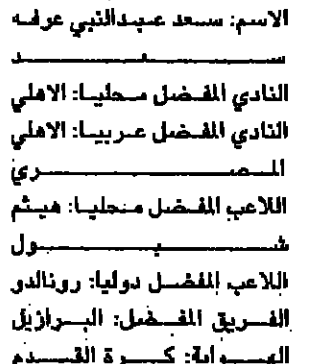 الاسم: سعد عبدالنبي عرفه
سعد
النادي المفضل محليا: الاهلي
النادي المفضل عربيا: الاهلي
المصري
اللاعب المفضل محليا: هيثم
شبول
اللاعب المفضل دوليا: رونالدو
الفريق المفضل: البرازيل
الهواية: كرة القدم